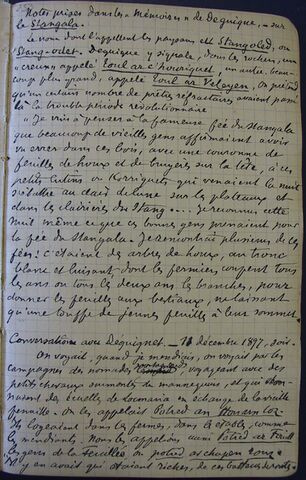 Notes prises dans les "Mémoires" de Déguignet, - sur
le Stangala.
Le nom dont l'appellent les paysans est Stangoled, ou
Stang-odet. Déguignet y signale, dans les rochers, un
"creux" appelé Toul ar c'horriquet, un autre beau-
coup plus grand, appelé Toul ar Veleyen, où prétend
qu'un certain nombre de prêtres réfractaires avaient passé
la trouble période révolutionnaire
"Je vins à penser à la fameuse fée du Stangala
que beaucoup de vieilles gens affirmaient avoir
vu errer dans ces bois, avec une couronne de
feuilles de houx et de bruyères sur la tête, à ces
petits lutins ou Korriquets qui venaient la nuit
s'ébattre au clair de lune sur les plateaux et
dans les clairières du Stang.... Je reconnus cette
nuit même ce que ces bonnes gens prenaient pour
la fée du Stangala. J'en rencontrai plusieurs de ces
fées! c'étaient des arbres de houx, au tronc
blanc et luisant dont les fermiers coupent tous
les ans ou tous les deux ans les branches, pour
donner les feuilles aux bestiaux, ne laissant
qu'une touffe de jeunes feuilles à leur sommet".
Conversation avec Déguignet. - 14 décembre 1897, soir.
On voyait, quand je mendiais, on voyait par les
campagnes des nomades voyageant avec des
petits chevaux surmontés de mannequins, et qui don-
naient des écuelles de Locmaria en échange de la vieille
ferraille. On les appelait Potred an
Ils logeaient dans les fermes, dans les étables, comme
les mendiants. Nous les appelions aussi Potred ar
les gens de la, ou potred ar chapen rouz.
Il y en avait qui étaient riches, de ces batteurs de routes